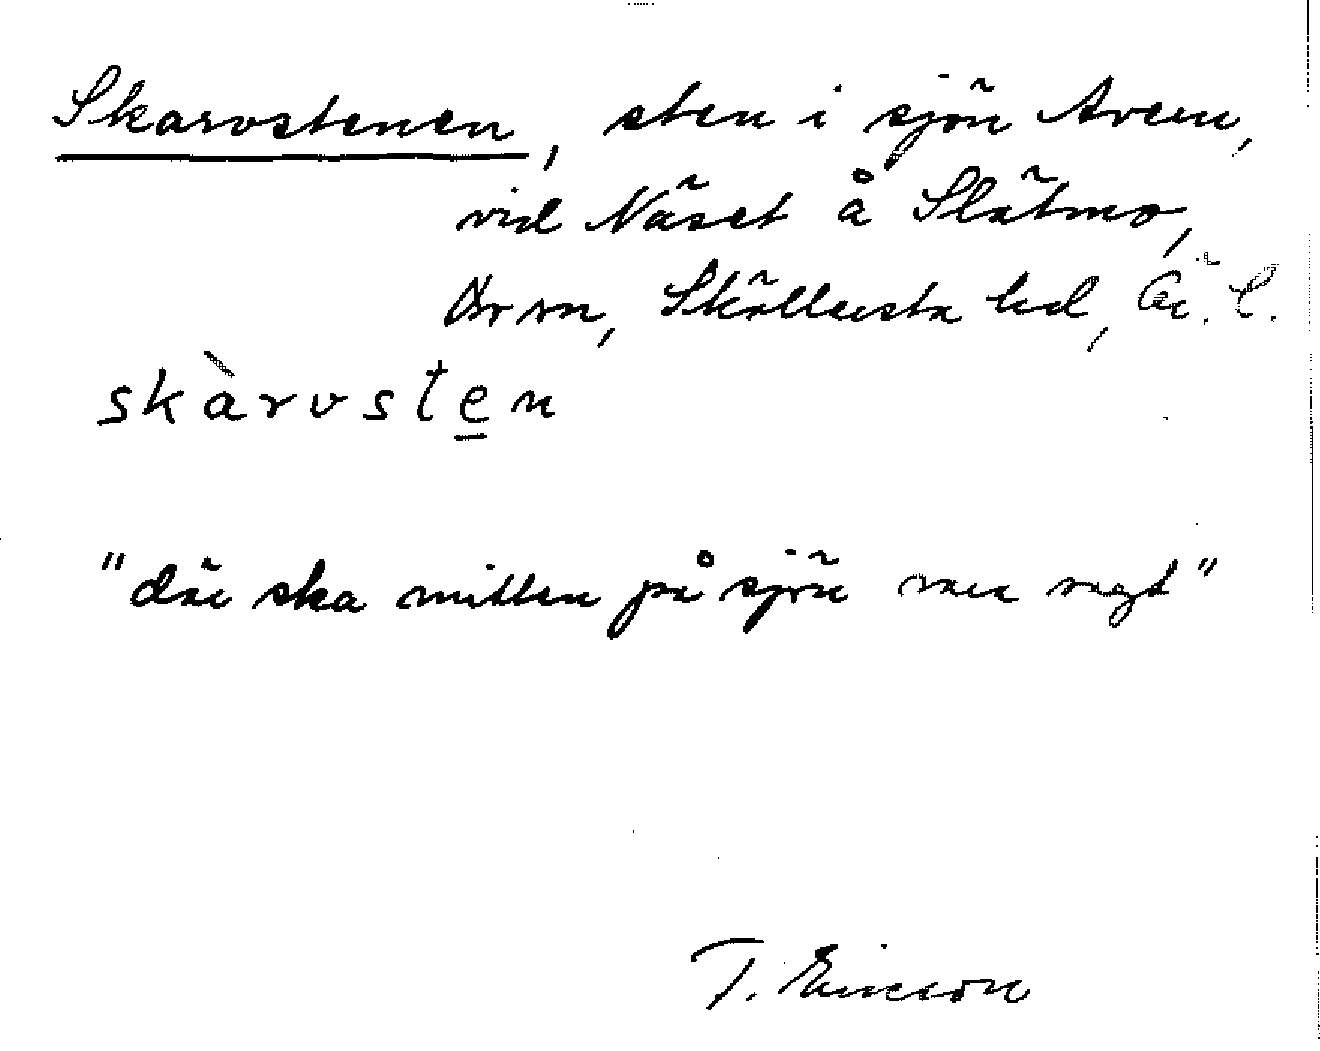 Skarvstenen, sten i sjön Aven,
vid Näset å Slätmo,
Ör sn, Sköllersta hd, Ör. l.
skàrvsten
"där ska mitten på sjön vara sagt"
T. Ericson